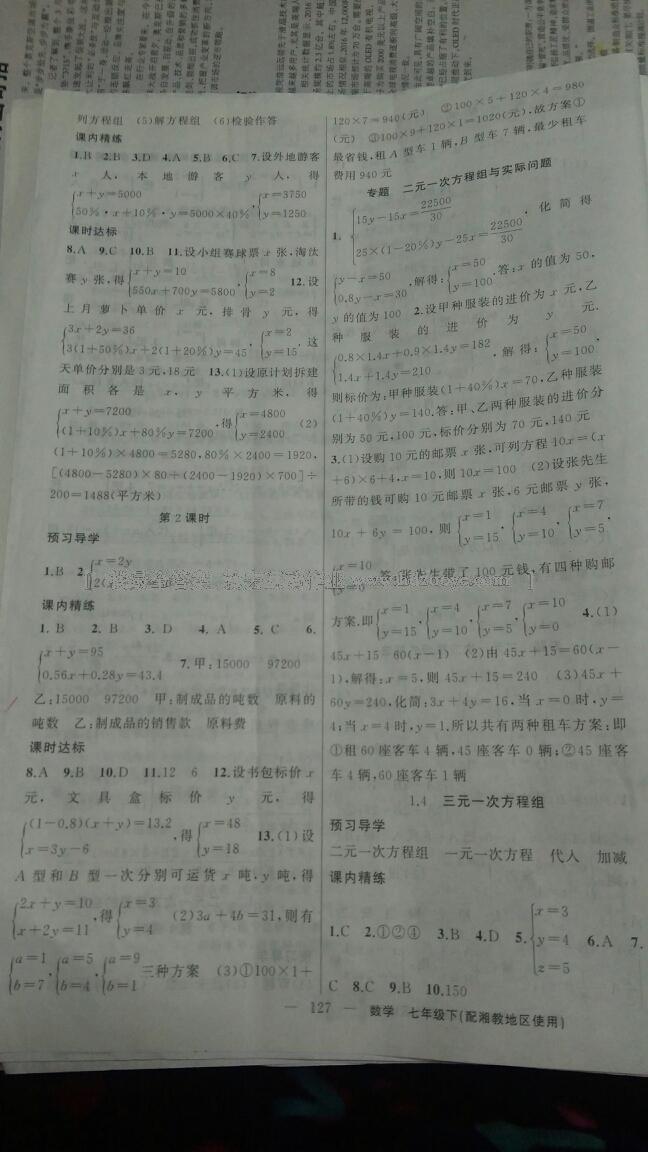 列方程组　(5)解方程组　(6)检验作答
课内精练
1.B　2.B　3.D　4.A　5.B　6.C　7.设外地游客
x 人，本地游客 y 人，得
{x+y=5000　50%·x+10%·y=5000×40%，{x=3750　y=1250
课时达标
8.A　9.C　10.B　11.设小组赛球票 x 张，淘汰
赛 y 张，得{x+y=10　550x+700y=5800，{x=8　y=2　12.设
上月萝卜单价 x 元，排骨 y 元，得
{3x+2y=36　3(1+50%)x+2(1+20%)y=45，{x=2　y=15. 这
天单价分别是 3 元,18 元　13.(1)设原计划拆建
面积各是 x，y 平方米，得
{x+y=7200　(1+10%)x+80%y=7200，得{x=4800　y=2400　(2)
(1+10%)×4800=5280,80%×2400=1920,
[(4800-5280)×80+(2400-1920)×700]÷
200=1488(平方米)
第 2 课时
预习导学
1.B　2.{x=2y
课内精练
1.B　2.B　3.D　4.A　5.C　6.
{x+y=95　0.56x+0.28y=43.4　7.甲：15000　97200
乙:15000　97200　甲:制成品的吨数　原料的
吨数　乙:制成品的销售款　原料费
课时达标
8.A　9.B　10.D　11.12　6　12.设书包标价 x
元，文具盒标价 y 元，得
{(1-0.8)(x+y)=13.2　x=3y-6，得{x=48　y=18　13.(1)设
A 型和 B 型一次分别可运货 x 吨,y 吨,得
{2x+y=10　x+2y=11，得{x=3　y=4　(2)3a+4b=31,则有
{a=1　b=7，{a=5　b=4，{a=9　b=1　三种方案　(3)①100×1+
120×7=940(元)　②100×5+120×4=980
(元)　③100×9+120×1=1020(元),故方案①
最省钱,租 A 型车 1 辆,B 型车 7 辆,最少租车
费用 940 元
专题　二元一次方程组与实际问题
1.{15y-15x=22500/30　25×(1-20%)y-25x=22500/30，化简得
{y-x=50　0.8y-x=30，解得:{x=50　y=100. 答:x 的值为 50,
y 的值为 100　2.设甲种服装的进价为 x 元,乙
种服装的进价为 y 元.
{0.8×1.4x+0.9×1.4y=182　1.4x+1.4y=210，解得:{x=50　y=100，
则标价为:甲种服装(1+40%)x=70,乙种服装
(1+40%)y=140.答:甲、乙两种服装的进价分
别为 50 元,100 元,标价分别为 70 元,140 元
3.(1)设购 10 元的邮票 x 张,可列方程 10x=(x
+6)×6+4,x=10,则 10x=100　(2)设张先生
所带的钱可购 10 元邮票 x 张,6 元邮票 y 张,
10x+6y=100,则{x=1　y=15，{x=4　y=10，{x=7　y=5，
{x=10　y=0　答:张先生带了 100 元钱,有四种购邮
方案.即{x=1　y=15，{x=4　y=10，{x=7　y=5，{x=10　y=0　4.(1)
45x+15　60(x-1)　(2)由 45x+15=60(x-
1),解得:x=5,则 45x+15=240　(3)45x+
60y=240,化简:3x+4y=16,当 x=0 时,y=
4;当 x=4 时,y=1.所以共有两种租车方案:即
①租 60 座客车 4 辆,45 座客车 0 辆;②45 座客
车 4 辆,60 座客车 1 辆
1.4　三元一次方程组
预习导学
二元一次方程组　一元一次方程　代入　加减
课内精练
1.C　2.①②④　3.B　4.D　5.{x=3　y=4　z=5　6.A　7.
C　8.C　9.B　10.150
— 127 —　数学　七年级下(配湘教地区使用)